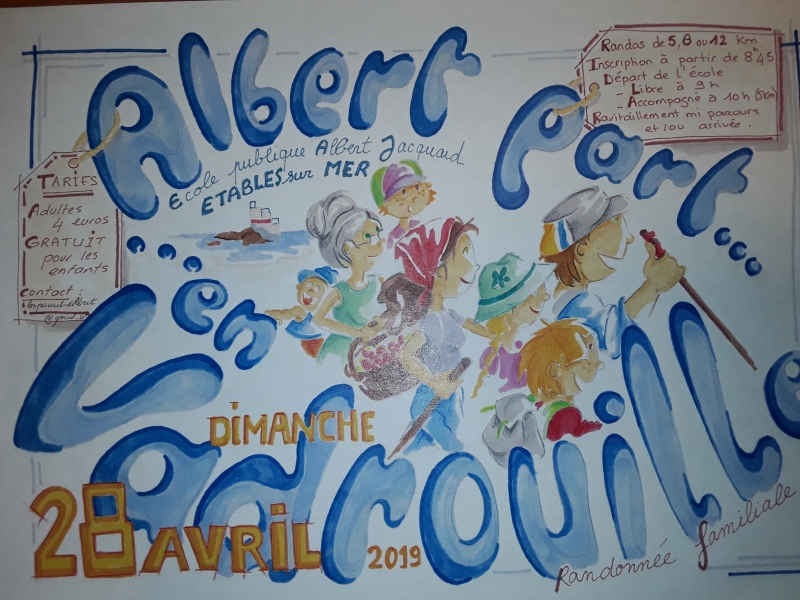 Albert Part...
École publique Albert Jacquard
ETABLES sur MER
Randos de 5, 8 ou 12 km
Inscription à partir de 8h45
Départ de l'école
- Libre à 9h
- Accompagné à 10h (5km)
Ravitaillement mi parcours
et/ou arrivée.
TARIFS
Adultes
4 euros
GRATUIT
pour les
enfants
Contact :
@gmail.co
...en
Vadrouille
DIMANCHE
28 AVRIL 2019
Randonnée familiale